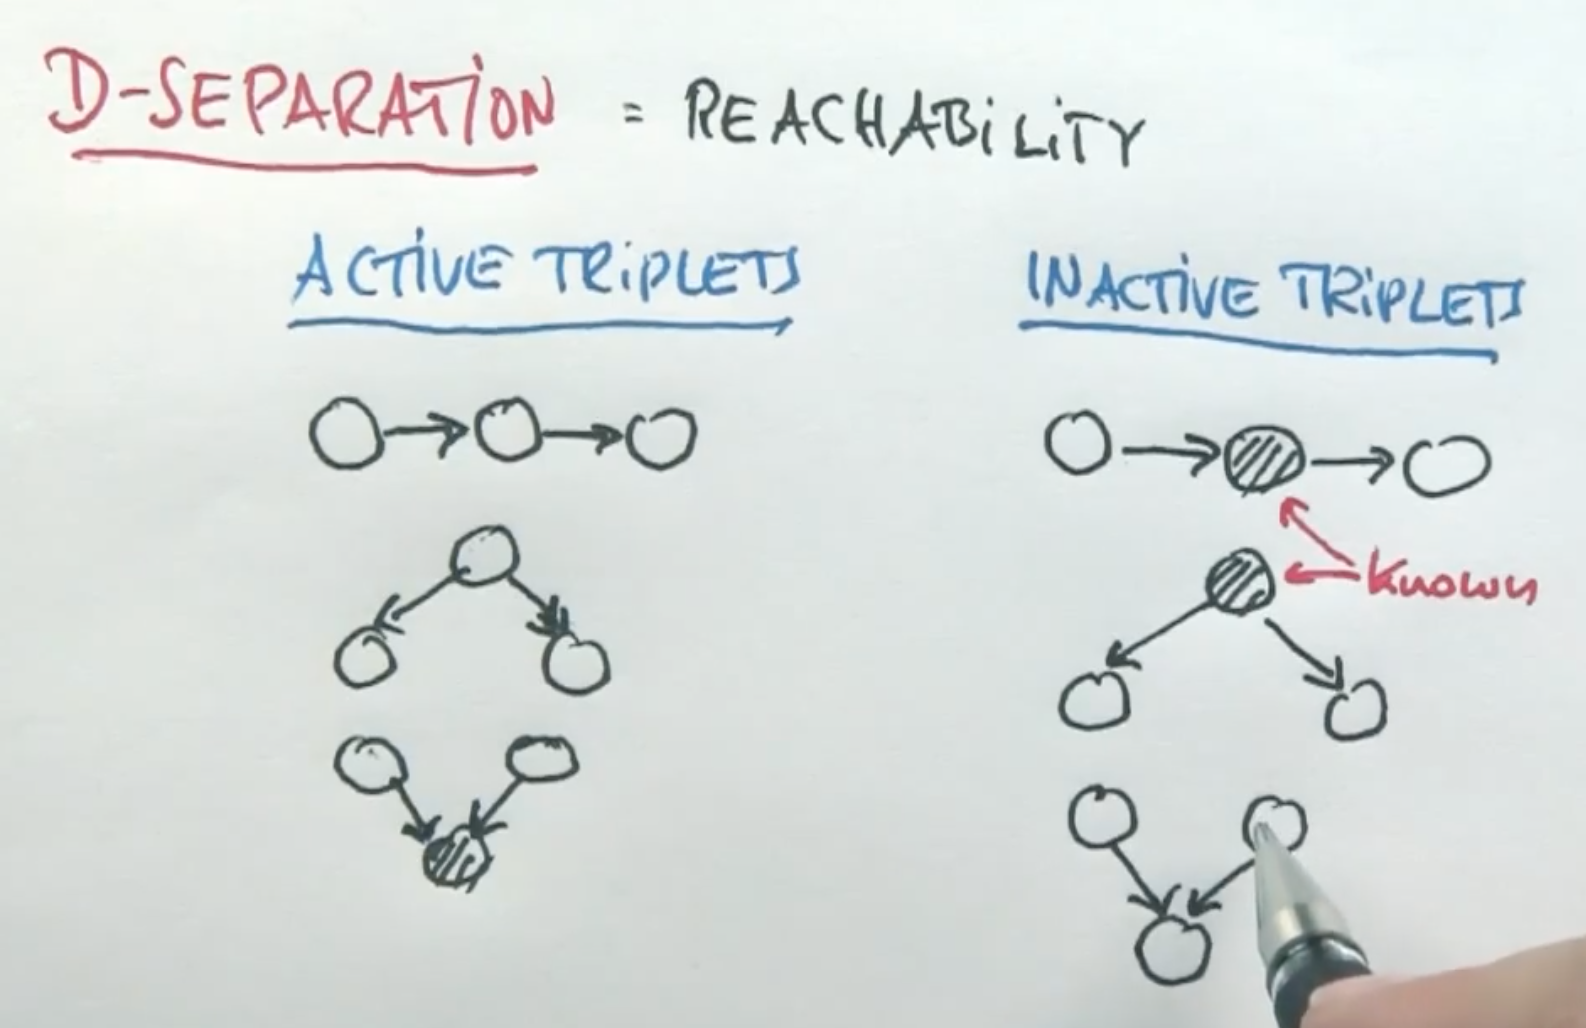 D-SEPARATION = REACHABiLiTY
ACTiVE TRiPLETS
INACTiVE TRiPLETS
Known